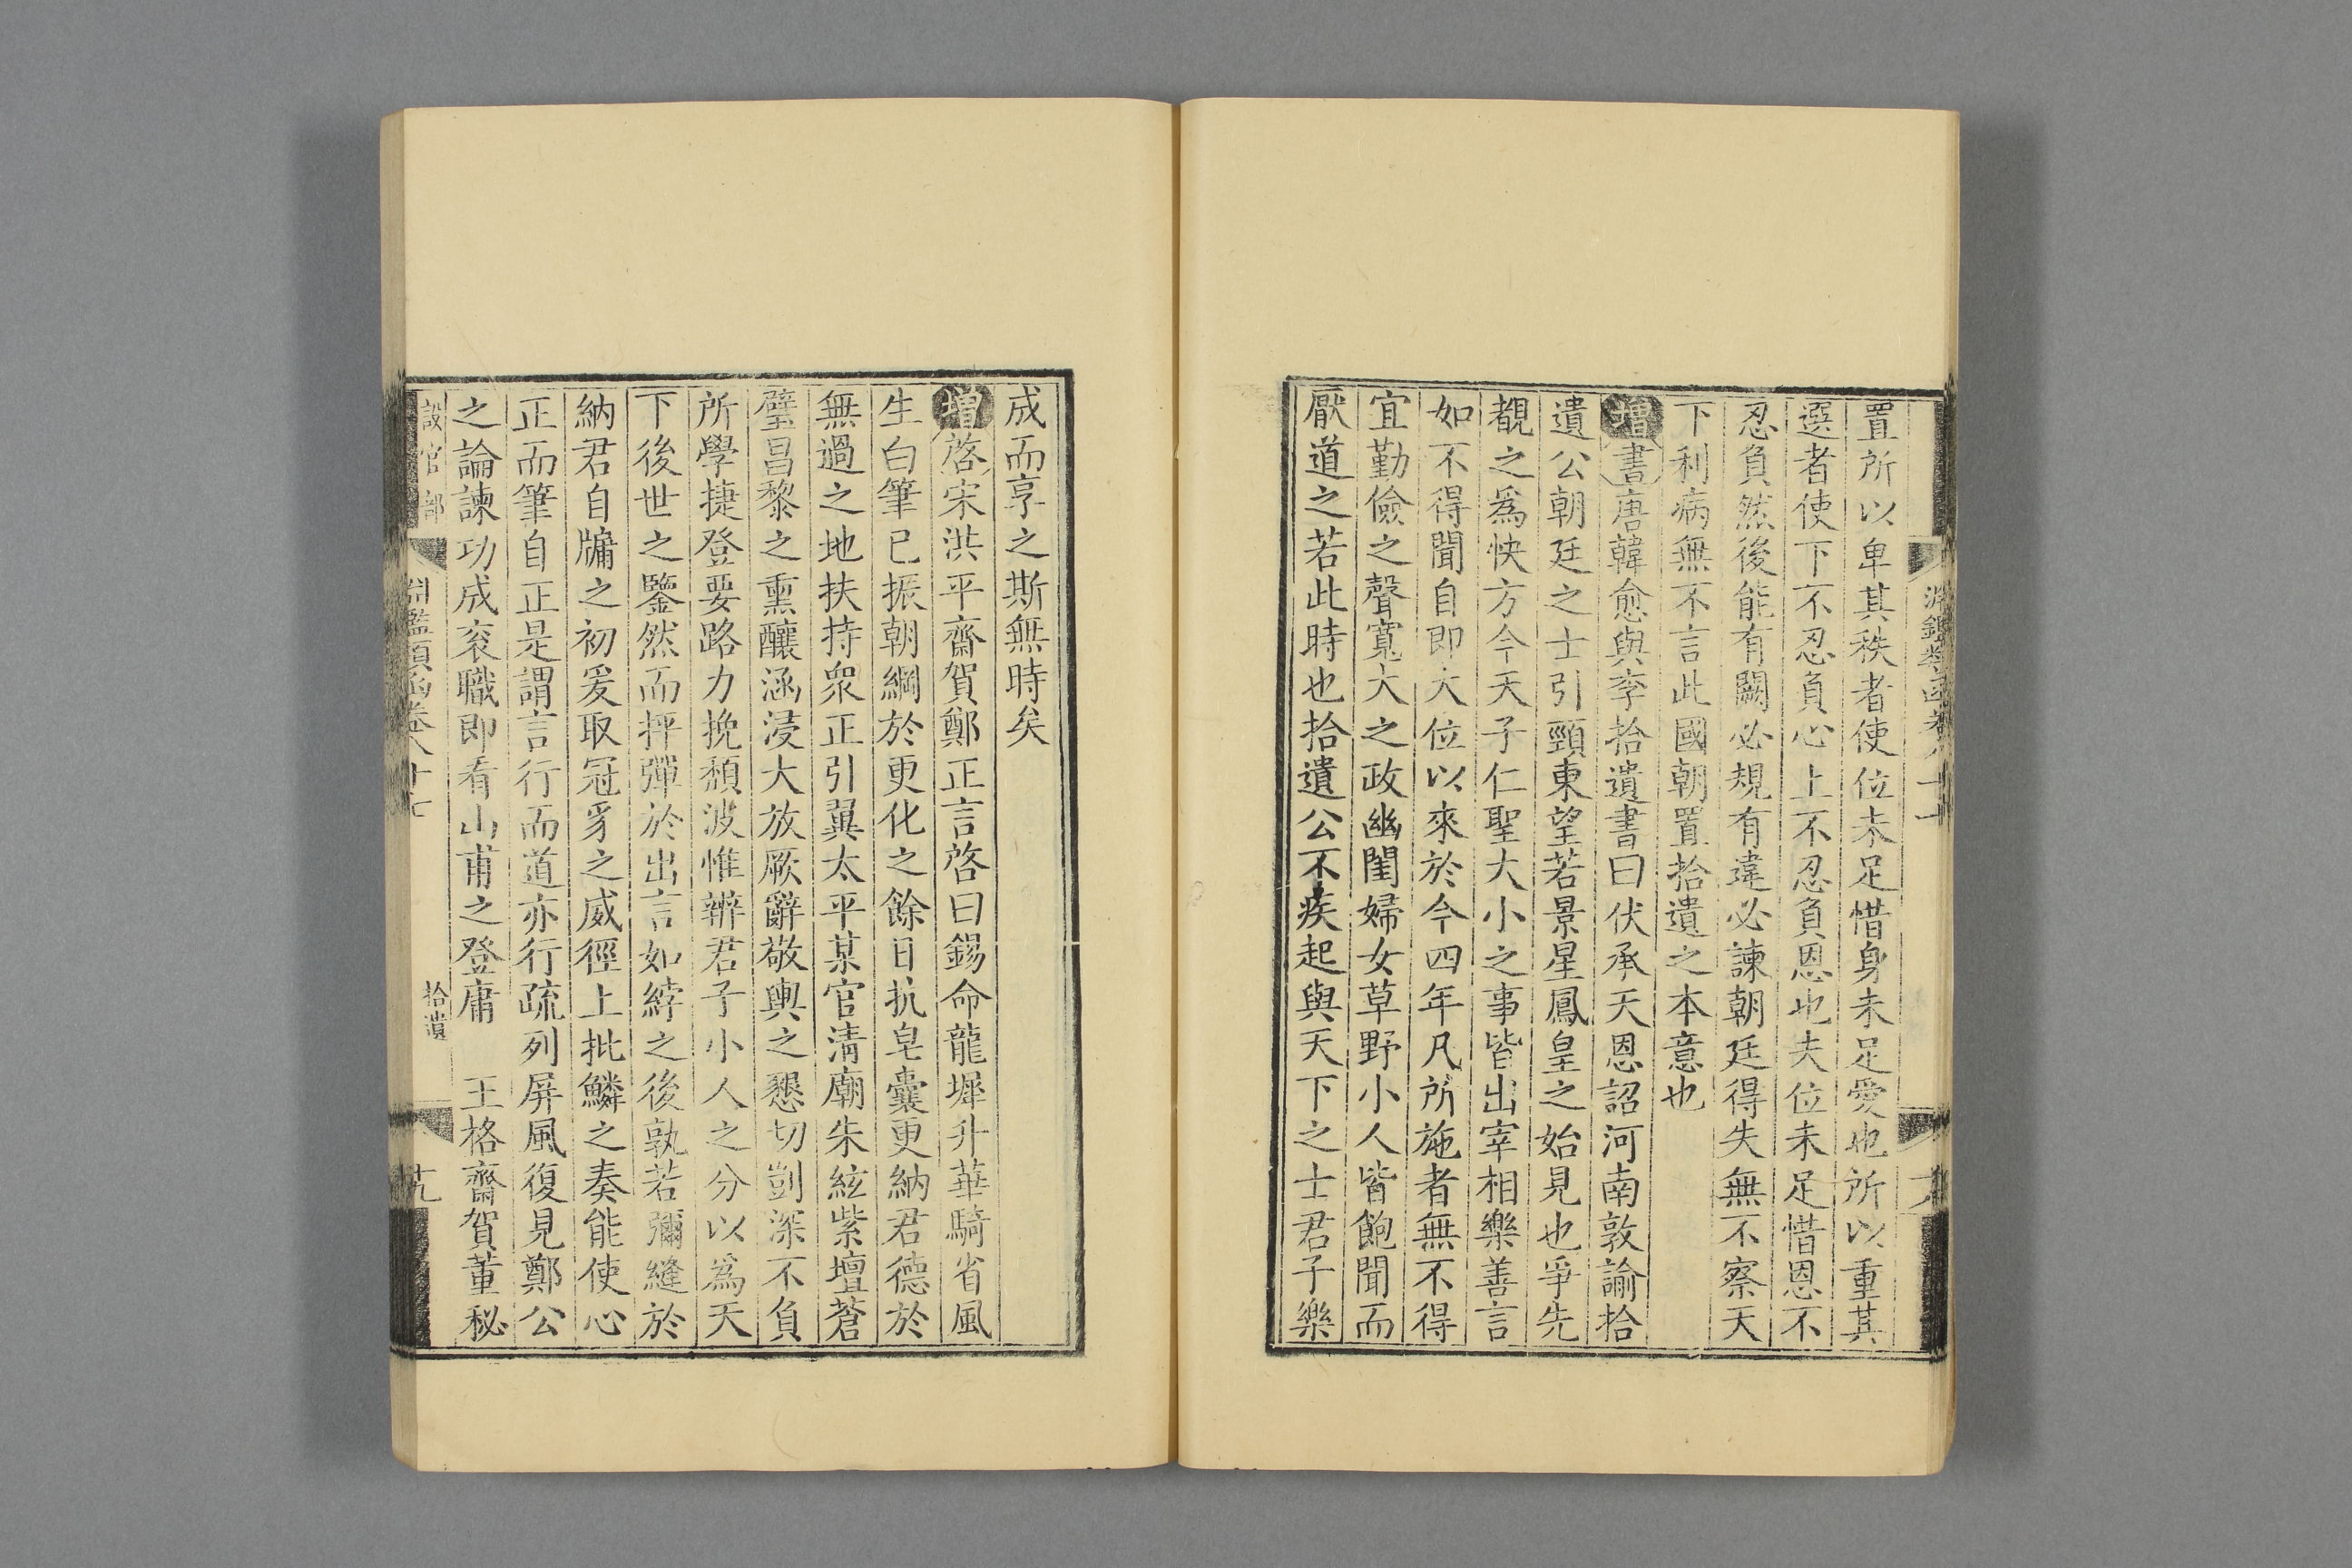 置所以卑其秩者使位未足惜身未足愛也所以重其
選者使下不忍負心上不忍負恩也夫位未足惜恩不
忍負然後能有闕必規有違必諫朝廷得失無不察天
下利病無不言此國朝置拾遺之本意也
增書唐韓愈與李拾遺書曰伏承天恩詔河南敦諭拾
遺公朝廷之士引頸東望若景星鳳皇之始見也爭先
覩之爲快方今天子仁聖大小之事皆出宰相樂善言
如不得聞自即大位以來於今四年凡所施者無不得
宜勤儉之聲寬大之政幽閨婦女草野小人皆飽聞而
厭道之若此時也拾遺公不疾起與天下之士君子樂
成而享之斯無時矣
增啓宋洪平齋賀鄭正言啓曰錫命龍墀升華騎省風
生白筆已振朝綱於更化之餘日抗皂囊更納君德於
無過之地扶持衆正引翼太平某官清廟朱絃紫壇蒼
璧昌黎之熏釀涵浸大放厥辭敬輿之懇切剴深不負
所學捷登要路力挽頹波惟辨君子小人之分以爲天
下後世之鑒然而抨彈於出言如綍之後孰若彌縫於
納君自牖之初爰取冠豸之威徑上批鱗之奏能使心
正而筆自正是謂言行而道亦行疏列屏風復見鄭公
之論諫功成袞職即看山甫之登庸　王格齋賀董秘
設官部
淵鑑類函卷八十七
拾遺
十九